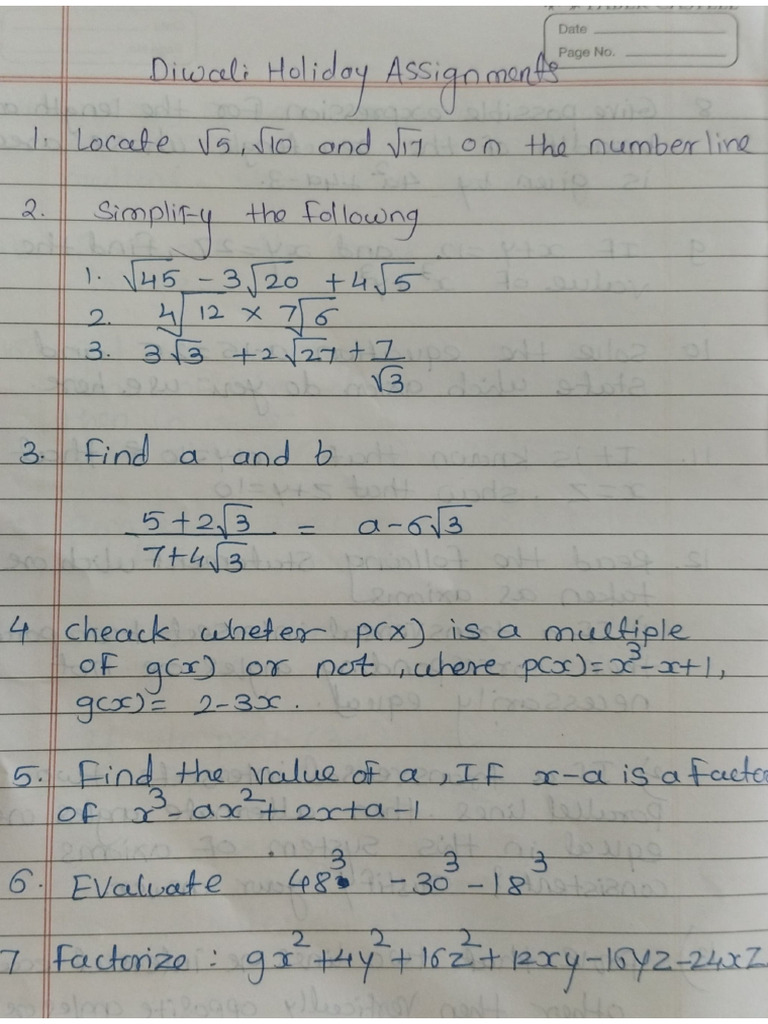 Date
Page No.
Diwali Holiday Assignments
1. Locate √5, √10 and √17 on the numberline
2. Simplify the followng
1. √45 - 3√20 + 4√5
2. 4√12 × 7√6
3. 3√3 + 2√27 + 7/√3
3. find a and b
5+2√3 / 7+4√3 = a-6√3
4 cheack wheter p(x) is a multiple
of g(x) or not, where p(x)=x³-x+1,
g(x)= 2-3x.
5. Find the value of a, If x-a is a facto
of x³-ax²+2x+a-1
6. Evaluate 48³ - 30³ - 18³
7 factorize: 9x²+4y²+16z²+12xy-16yz-24xz